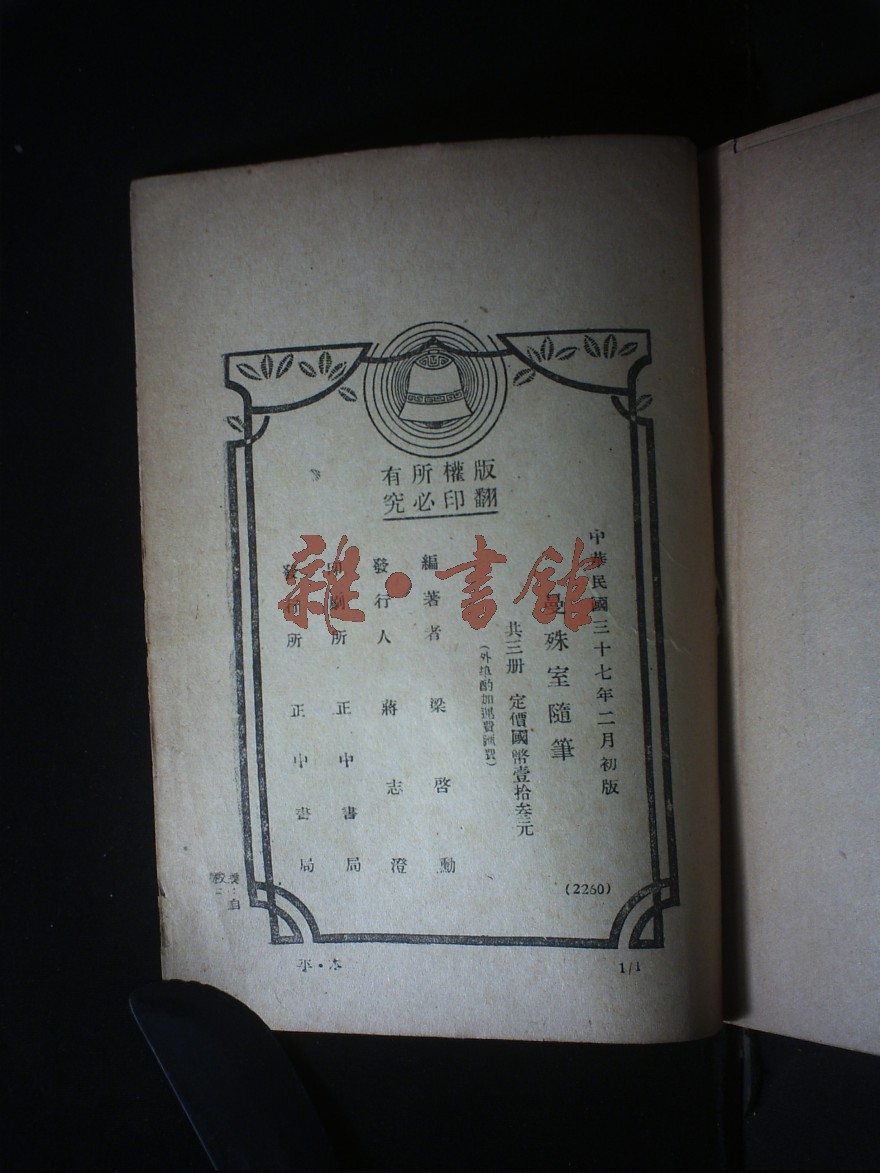 版權所有
翻印必究
中華民國三十七年二月初版
曼殊室隨筆
共三册 定價國幣壹拾叁元
(外埠酌加運費匯費)
編著者 梁啓勳
發行人 蔣志澄
印刷所 正中書局
發行所 正中書局
(2260)
1/1
雜·書館